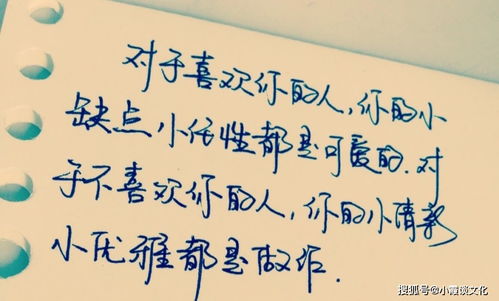 对于喜欢你的人，你的小
缺点小任性都是可爱的.对
于不喜欢你的人，你的小清新
小优雅都是做作.
搜狐号@小霞谈文化